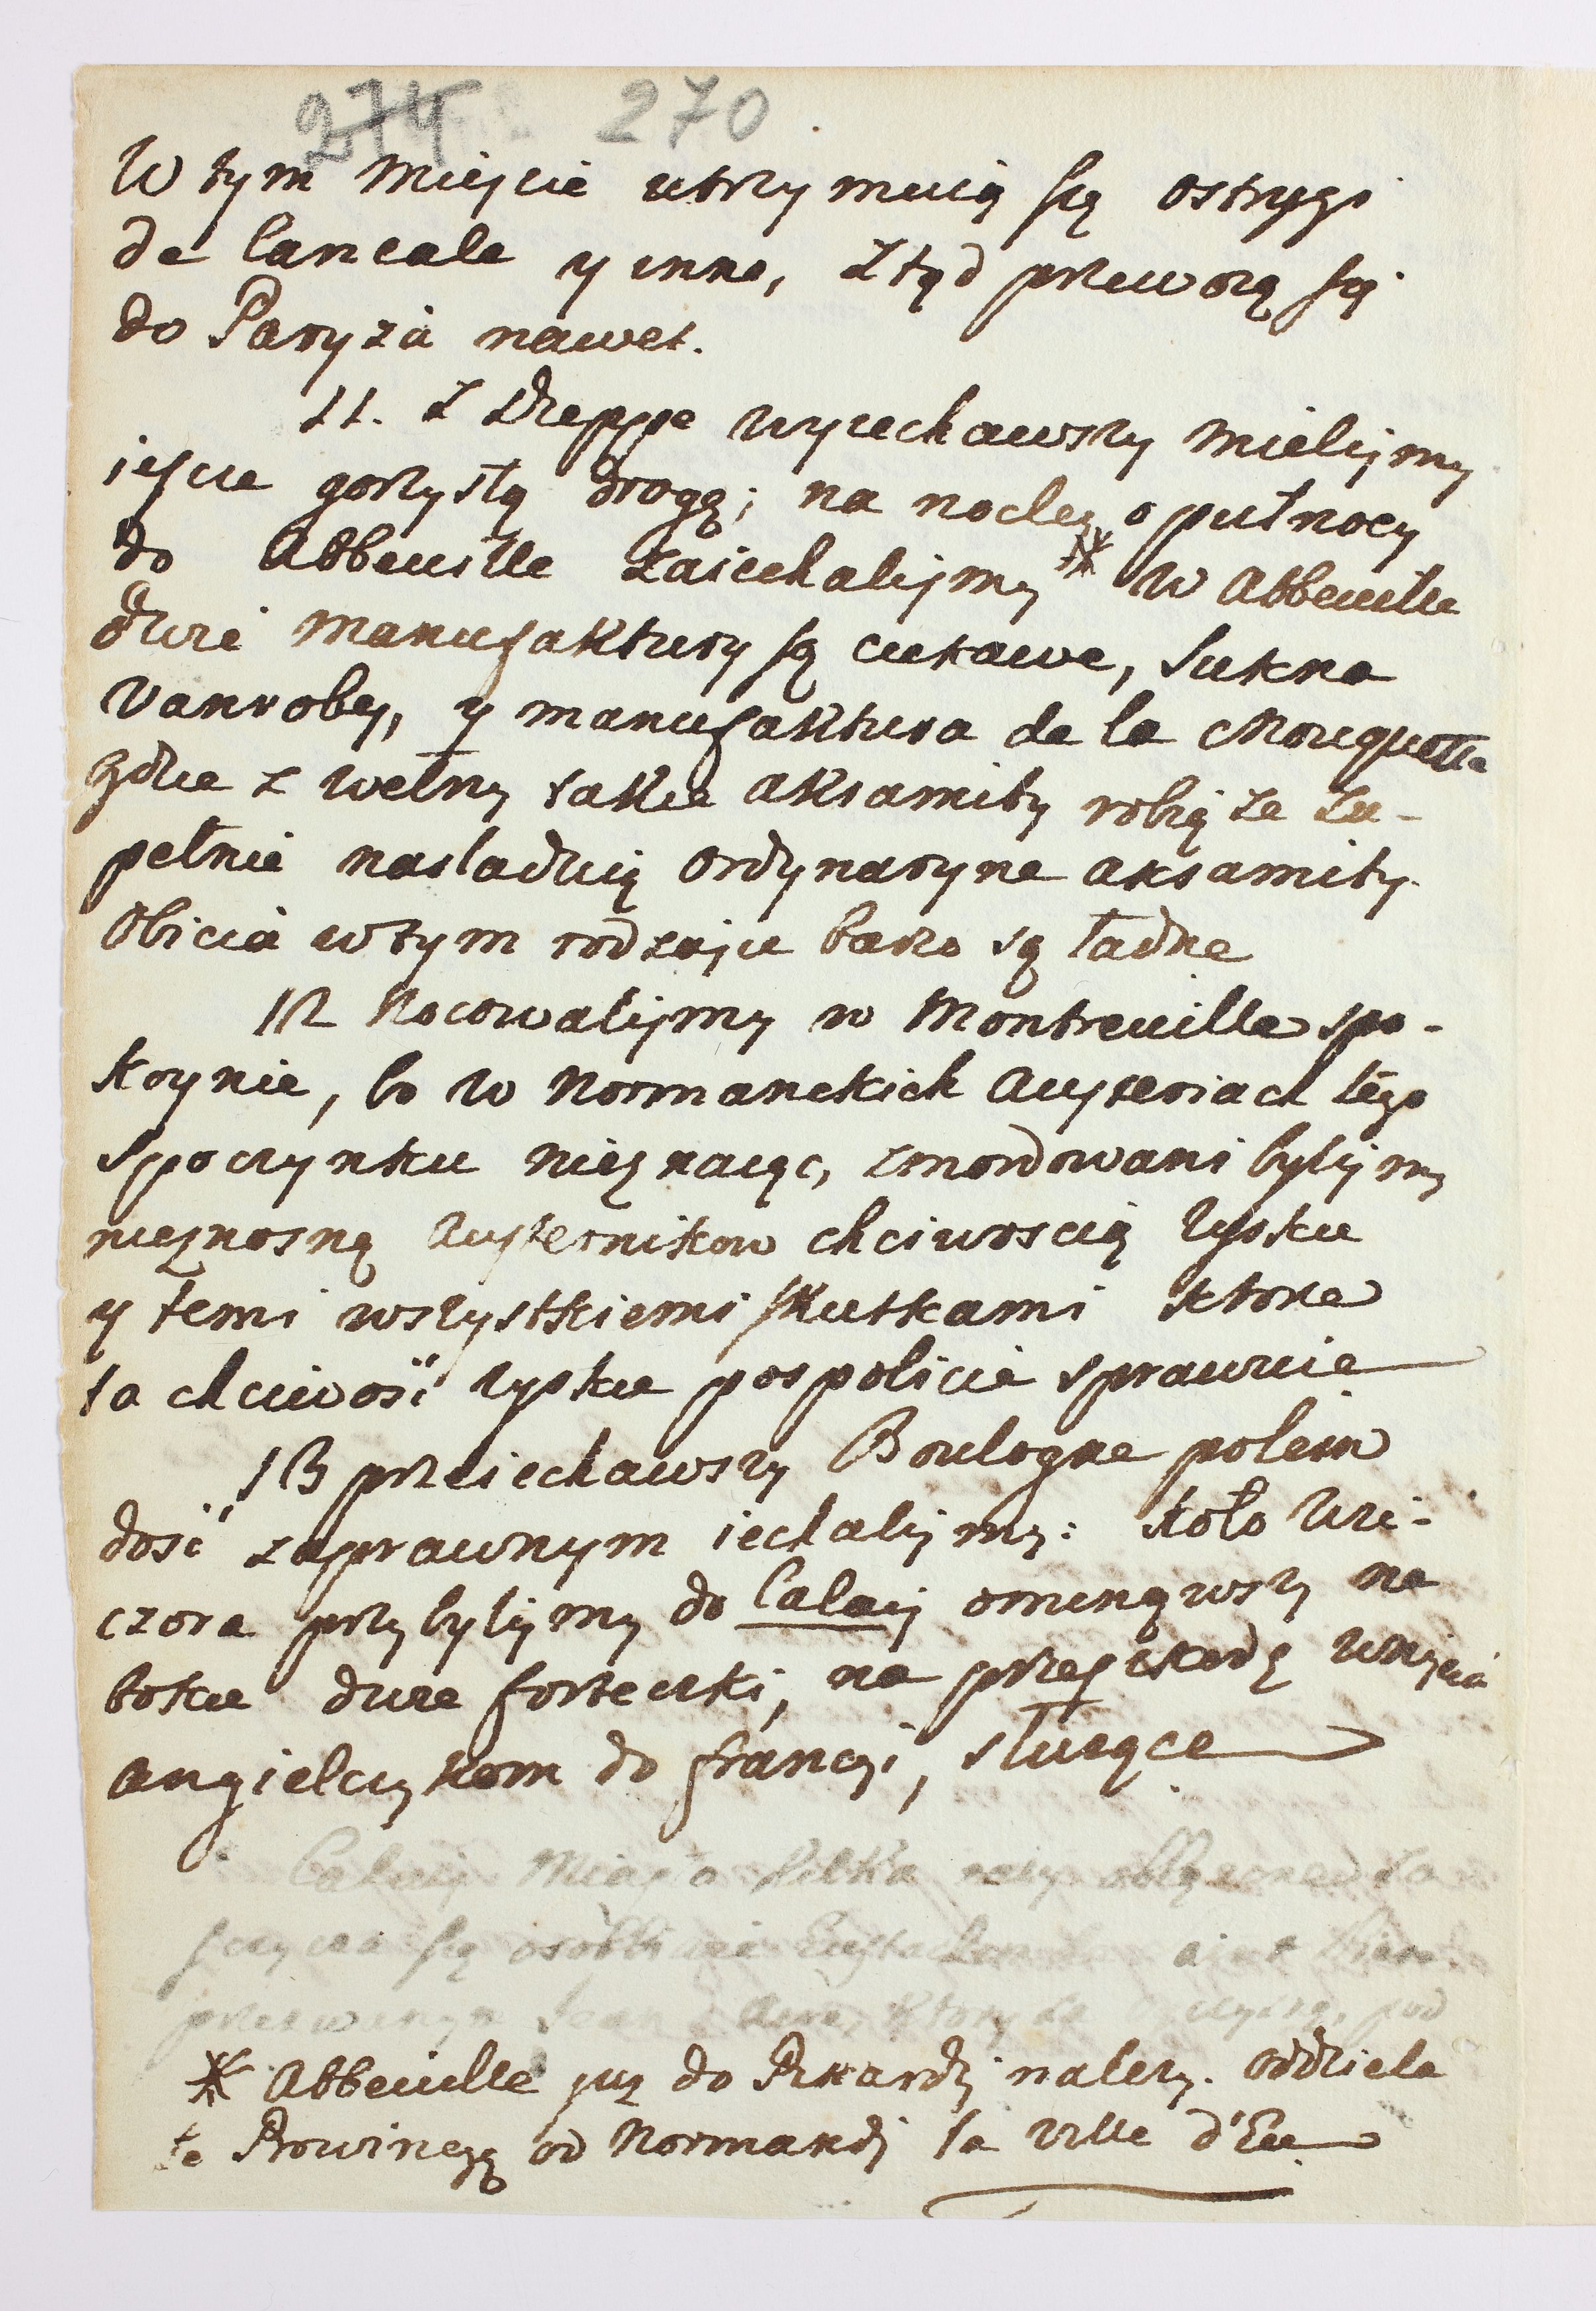 274 270
W tym Mieyscie utrzymuią się ostrygi
de Cancale y inne, ztąd przewozą się
do Paryża nawet.
11. z Dieppe wyiechawszy mieliśmy
ieszcze gorzystą drogę; na nocleg o pułnocy
do Abbeville zaiechaliśmy * W Abbeville
dwie manufaktury są ciekawe, Sukna
Vanroby, y manufaktura de la Mouquette
gdzie z wełny takie aksamity robią że zu-
pełnie nasladuią ordynaryne aksamity.
Obicia w tym rodzaju barzo są ładne
12 Nocowaliśmy w Montreuille spo-
koynie, bo w Normanckich Austeriach tego
spoczynku nieznaiąc, zmordowani byliśmy
nieznosną Austernikow chciwoscią zysku
y temi wszystkiemi skutkami ktore
ta chciwość zysku pospolicie sprawuie
13 przeiechawszy Boulogne polem
dość zaprawnym iechaliśmy: koło Wie-
czora przybyliśmy do Calais ominąwszy na
boku dwie forteczki, na przeszkodę wniścia
angielczykom do francyi, służące
Miasto
się
pod
* Abbeville już do Pikardyi należy. oddziela
te Prowincyą od Normandyi la Ville d'Eu